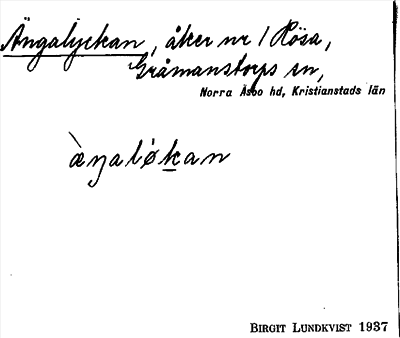 Ängalyckan, åker nr 1 Hösa,
Gråmanstorps sn,
Norra Åsbo hd, Kristianstads län
æ̀ŋalók̲an
BIRGIT LUNDKVIST 1937